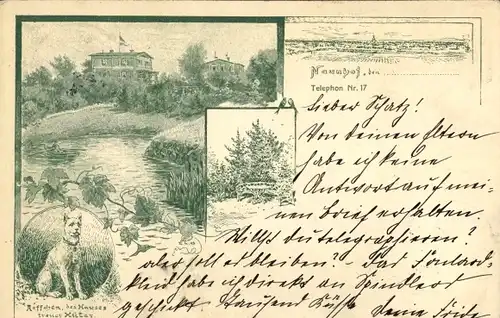 Naunhof, den
Telephon Nr. 17
Lieber Schatz!
Von deinen Eltern
habe ich keine
Antwort auf mei-
nen Brief erhalten.
Willst du telegraphieren?
oder soll es bleiben? - Das Foulard-
kleid habe ich direkt an Spindlers
geschickt. Tausend Küsse deine Frida
des Hauses
treuer Hüter.